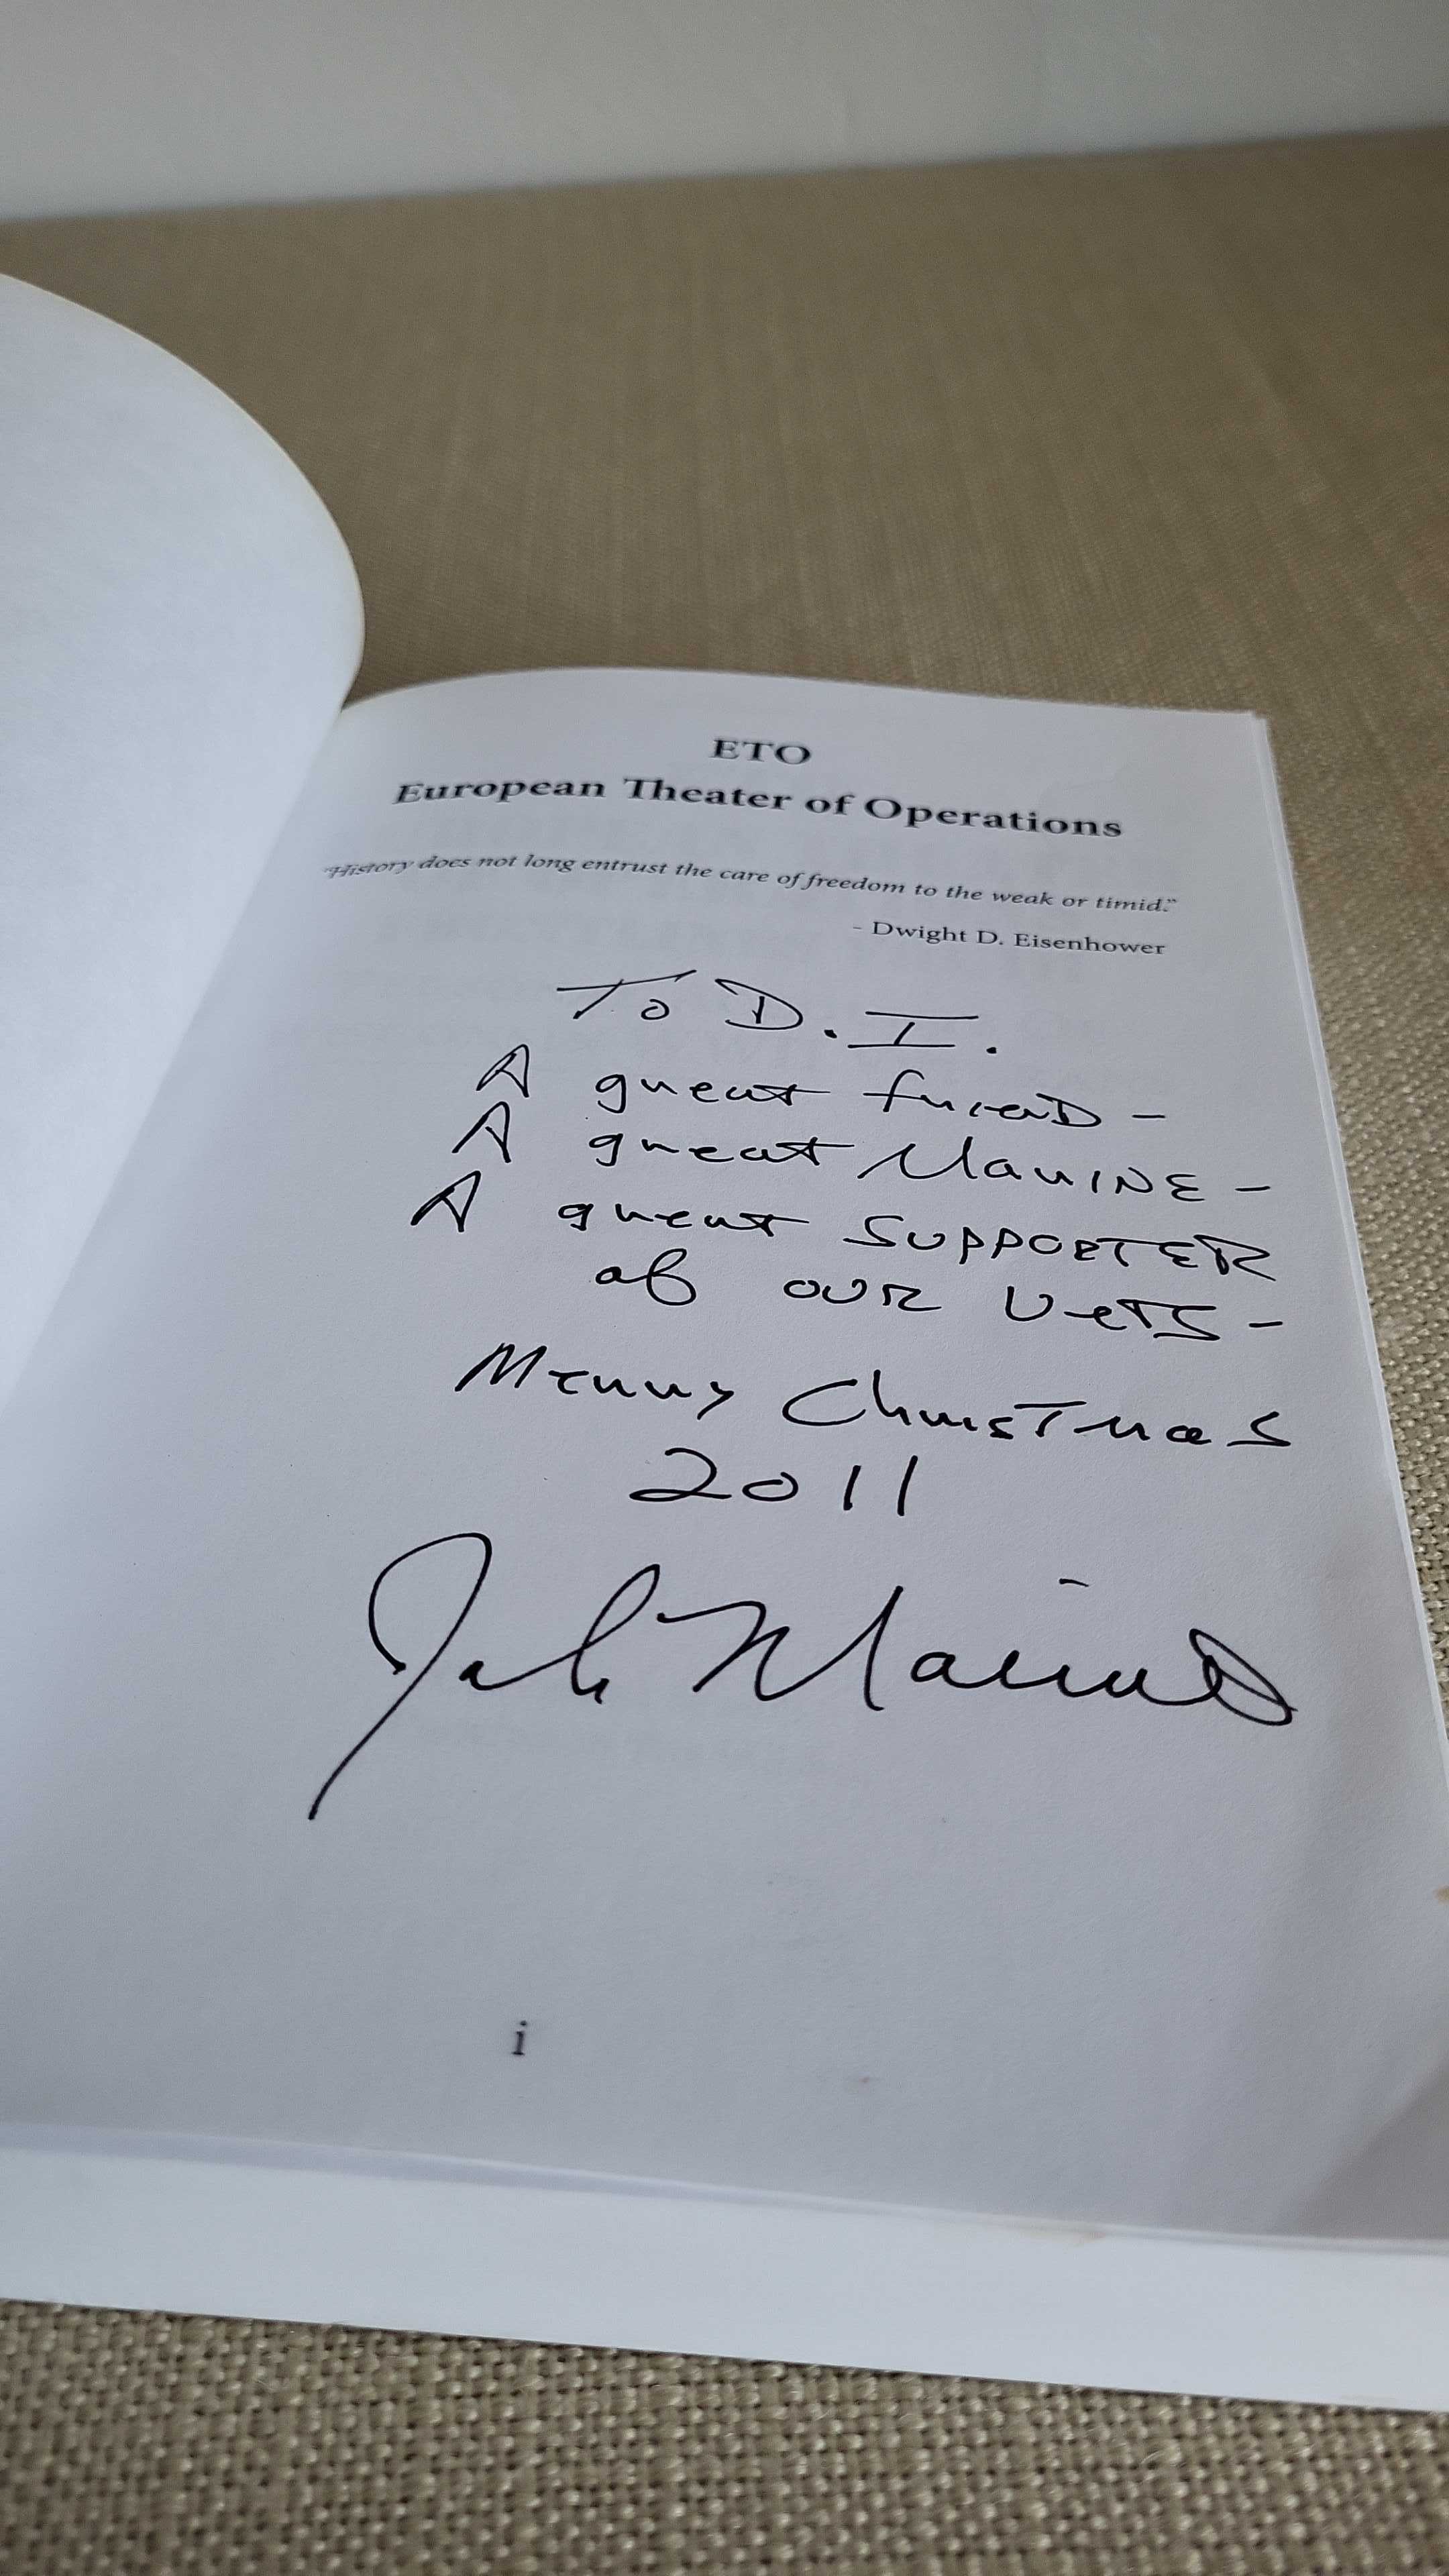 ETO
European Theater of Operations
"History does not long entrust the care of freedom to the weak or timid."
- Dwight D. Eisenhower
To D.I.
A great friend -
A great Marine -
A great SUPPORTER
of OUR VETS -
Merry Christmas
2011
i